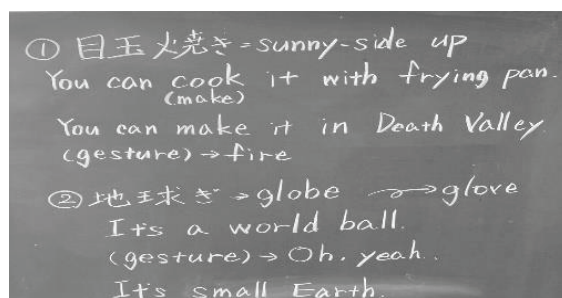 ① 目玉焼き = sunny-side up
You can cook it with frying pan.
(make)
You can make it in Death Valley
(gesture) → fire
② 地球ぎ → globe → glove
It's a world ball.
(gesture) → Oh. yeah..
It's small Earth.